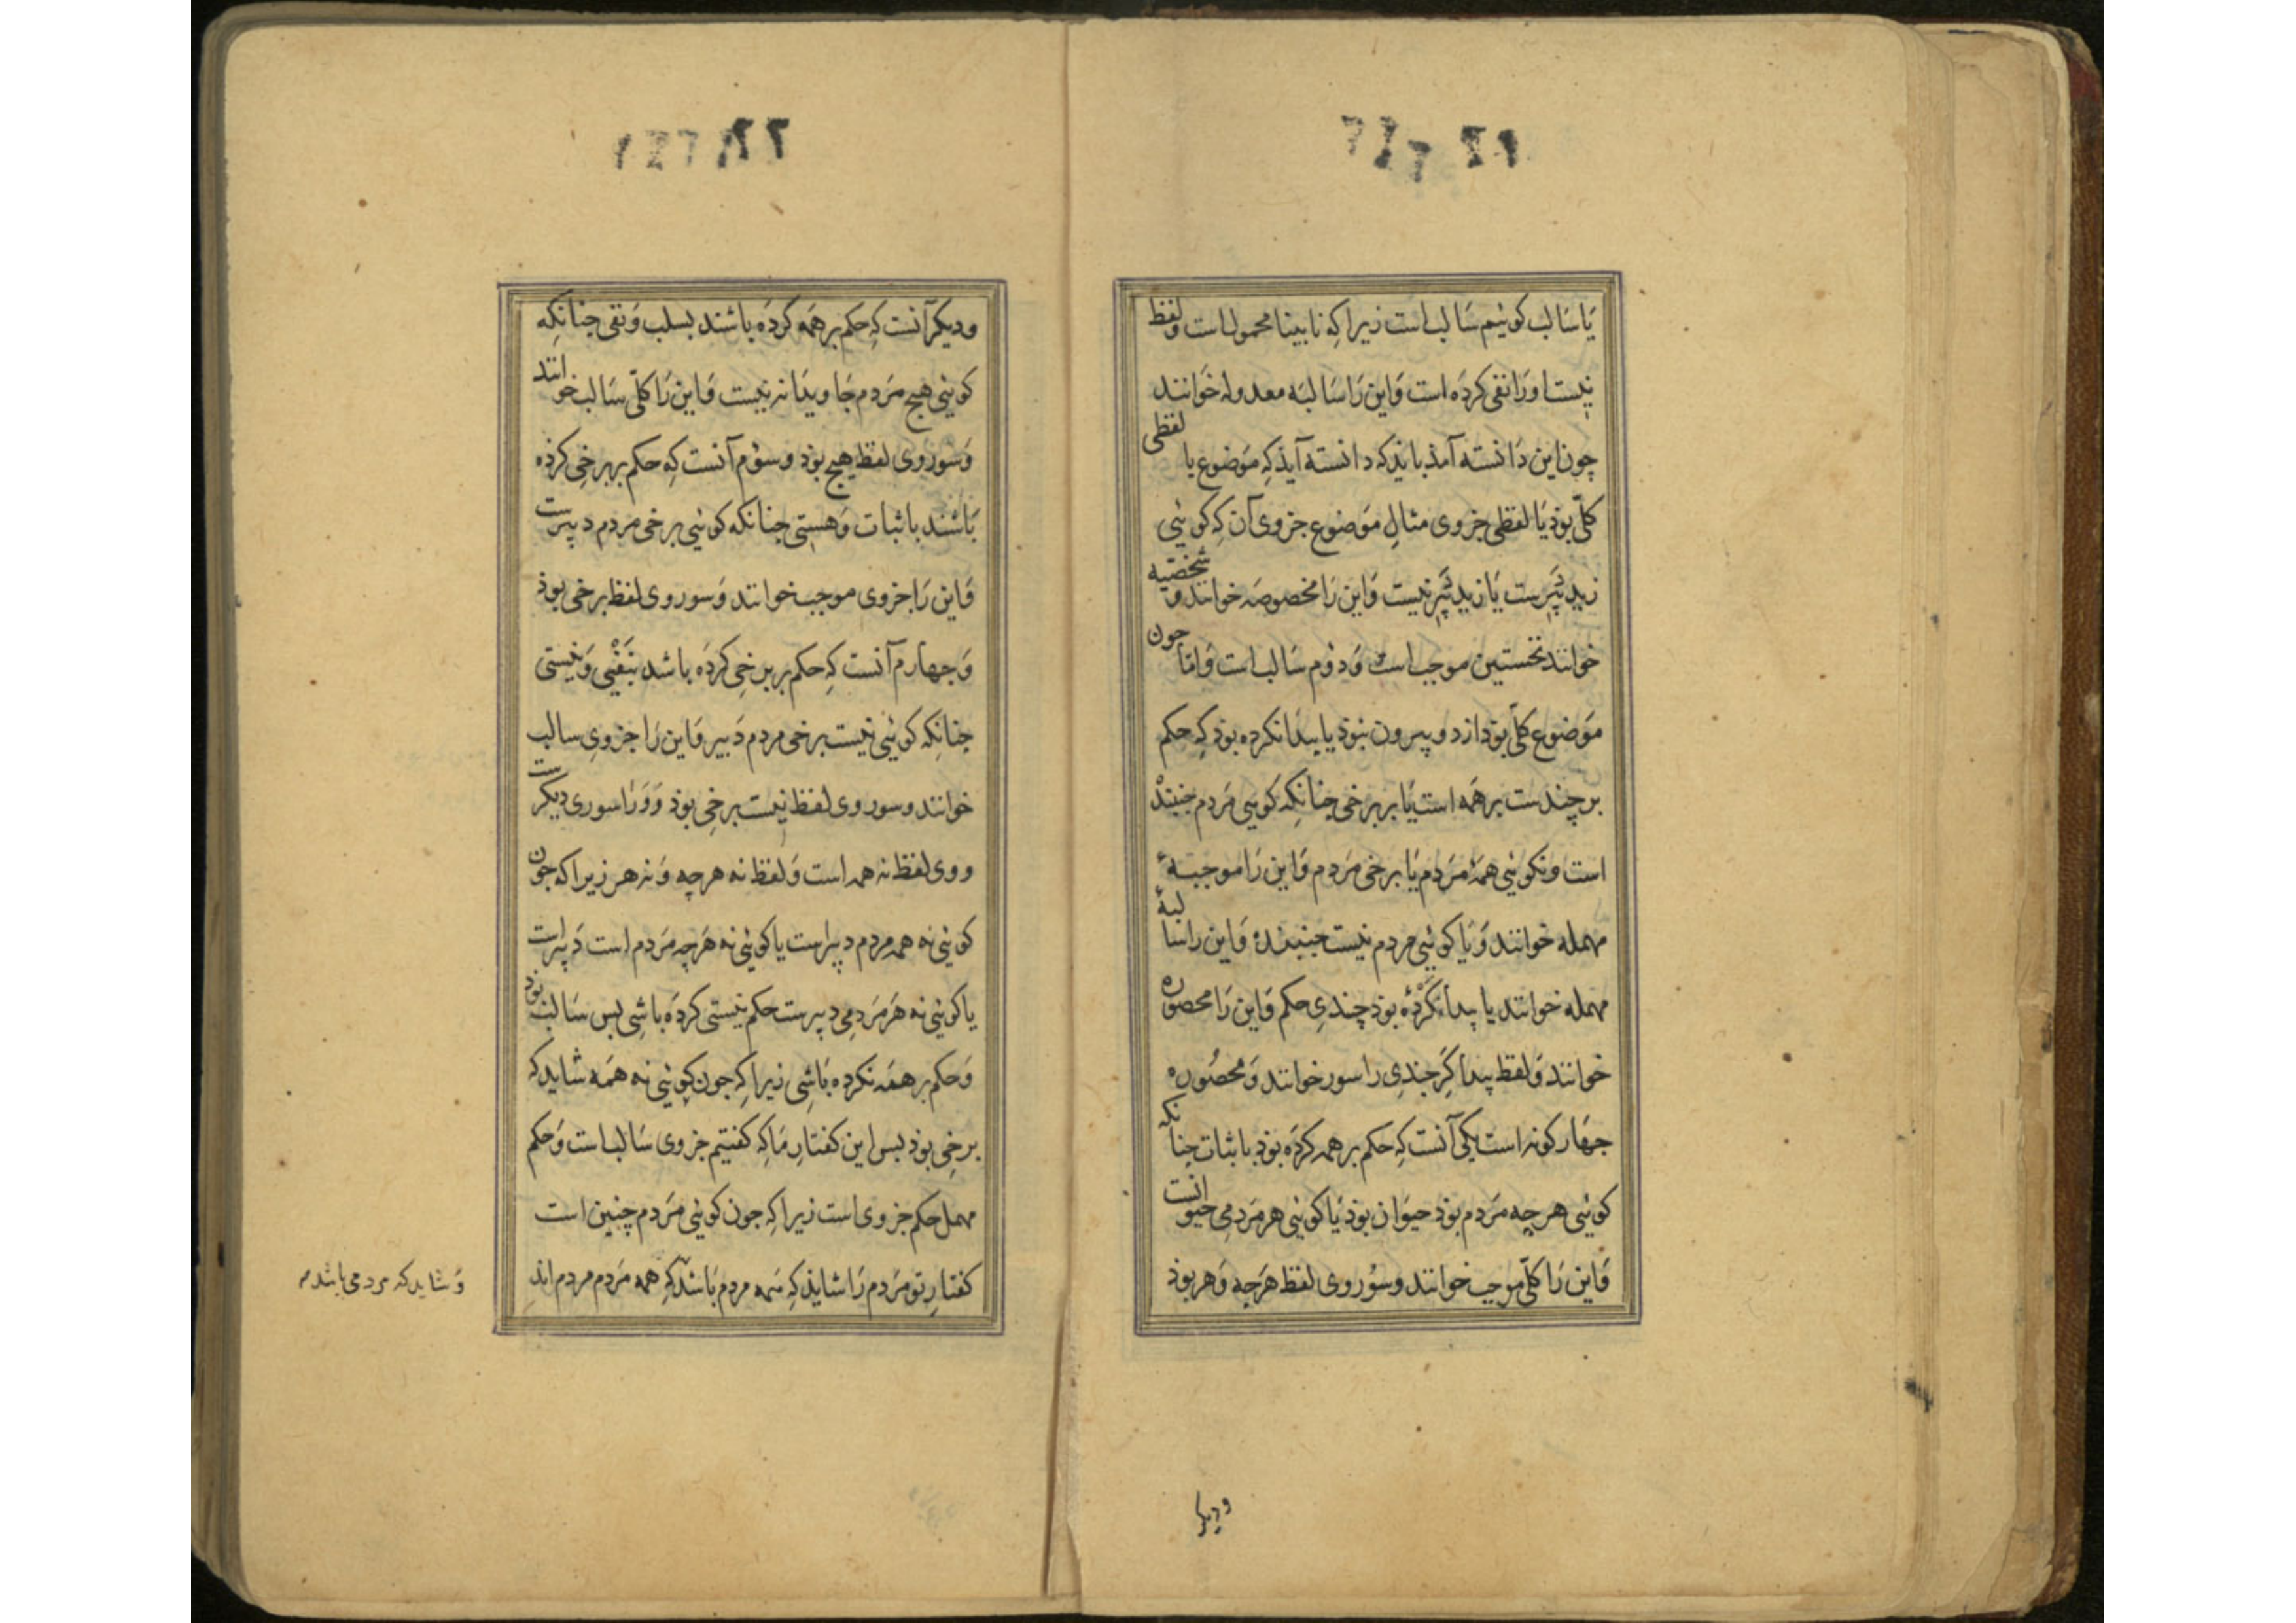 یا سالب کوئیم سالب است زیرا که نابینا محمول است و لفظ
نیست او را نفی کرده است و این را سالبه معدوله خوانند
چون این دانسته آمذ بایذ که دانسته آیذ که موضوع یا لفظی
کلّی بوذ یا لفظی جزوی مثال موضوع جزوی آن که کوئی
زید دبیرست یا زید دبیر نیست و این را مخصوصه خوانند و شخصیه
خوانند نخستین موجب است و دوم سالب است و امّا جون
موضوع کلّی بوذ از دو بیرون نبوذ یا پیدا نکرده بوذ که حکم
بر چندست بر همه است یا بر برخی جنانکه کوئی مردم جنبنده
است و نکوئی همه مردم یا برخی مردم و این را موجبهٔ
مهمله خوانند و یا کوئی مردم نیست جنبنده و این را سالبهٔ
مهمله خوانند یا پیدا کرده بوذ چندی حکم و این را محصوره
خوانند و لفظ پیدا کر جندی را سور خوانند و محصوره
جهار کونه است یکی آنست که حکم بر همه کرده بوذ باثبات جنانکه
کوئی هر چه مردم بوذ حیوان بوذ یا کوئی هر مردمی حیوانست
و این را کلّی موجب خوانند و سور وی لفظ هر چه و هر بوذ
و دیکر
و دیکر آنست که حکم بر همه کرده باشند بسلب و نفی جنانکه
کوئی هیج مردم جاویدانه نیست و این را کلّی سالب خوانند
و سور وی لفظ هیج بوذ و سوم آنست که حکم بر برخی کرده
باشند باثبات و هستی جنانکه کوئی برخی مردم دبیرست
و این را جزوی موجب خوانند و سور وی لفظ برخی بوذ
و جهارم آنست که حکم بر برخی کرده باشد بنفی و نیستی
جنانکه کوئی نیست برخی مردم دبیر و این را جزوی سالب
خوانند و سور وی لفظ نیست برخی بوذ و ورا سوری دیکرست
و وی لفظ نه همه است و لفظ نه هر چه و نه هر زیرا که جون
کوئی نه همه مردم دبیر است یا کوئی نه هر چه مردم است دبیر است
یا کوئی نه هر مردمی دبیرست حکم نیستی کرده باشی بس سالب بوذ
و حکم بر همه نکرده باشی زیرا که جون کوئی نه همه شاید که
برخی بوذ بس این کفتار ما که کفتیم جزوی سالب است و حکم
مهمل حکم جزوی است زیرا که جون کوئی مردم چنین است
کفتار تو مردم را شایذ که همه مردم باشد که همه مردم مردم اند
و شاید که مردمی باشد